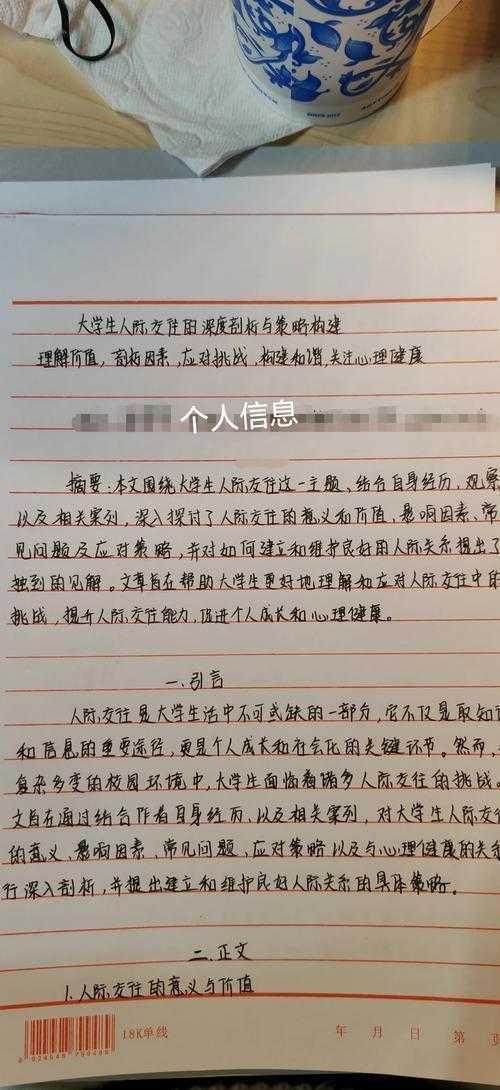 大学生人际交往的深度剖析与策略构建
理解价值，剖析因素，应对挑战，构建和谐，关注心理健康
个人信息
摘要：本文围绕大学生人际交往这一主题、结合自身经历、观察
以及相关案列，深入探讨了人际交往的意义和价值、影响因素、常
见问题及应对策略，并对如何建立和维护良好的人际关系提出了
独到的见解。文章旨在帮助大学生更好地理解和应对人际交往中的
挑战，提升人际交往能力，促进个人成长和心理健康。
一、引言
人际交往是大学生活中不可或缺的一部分，它不仅是取知识
和信息的重要途径，更是个人成长和社会化的关键环节。然而，
复杂多变的校园环境中，大学生面临着诸多人际交往的挑战。
文旨在通过结合作者自身经历、以及相关案列，对大学生人际交
的意义、影响因素、常见问题、应对策略以及与心理健康的关系
行深入剖析，并提出建立和维护良好人际关系的具体策略。
二、正文
1.人际交往的意义与价值
18K单线 年 月 日 第 页